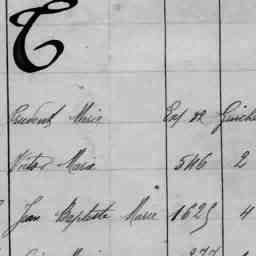 T
Prudent Marie Exp 22 Guiche
Victor Marie 546 2
Jean Baptiste Marie 1625 4
277